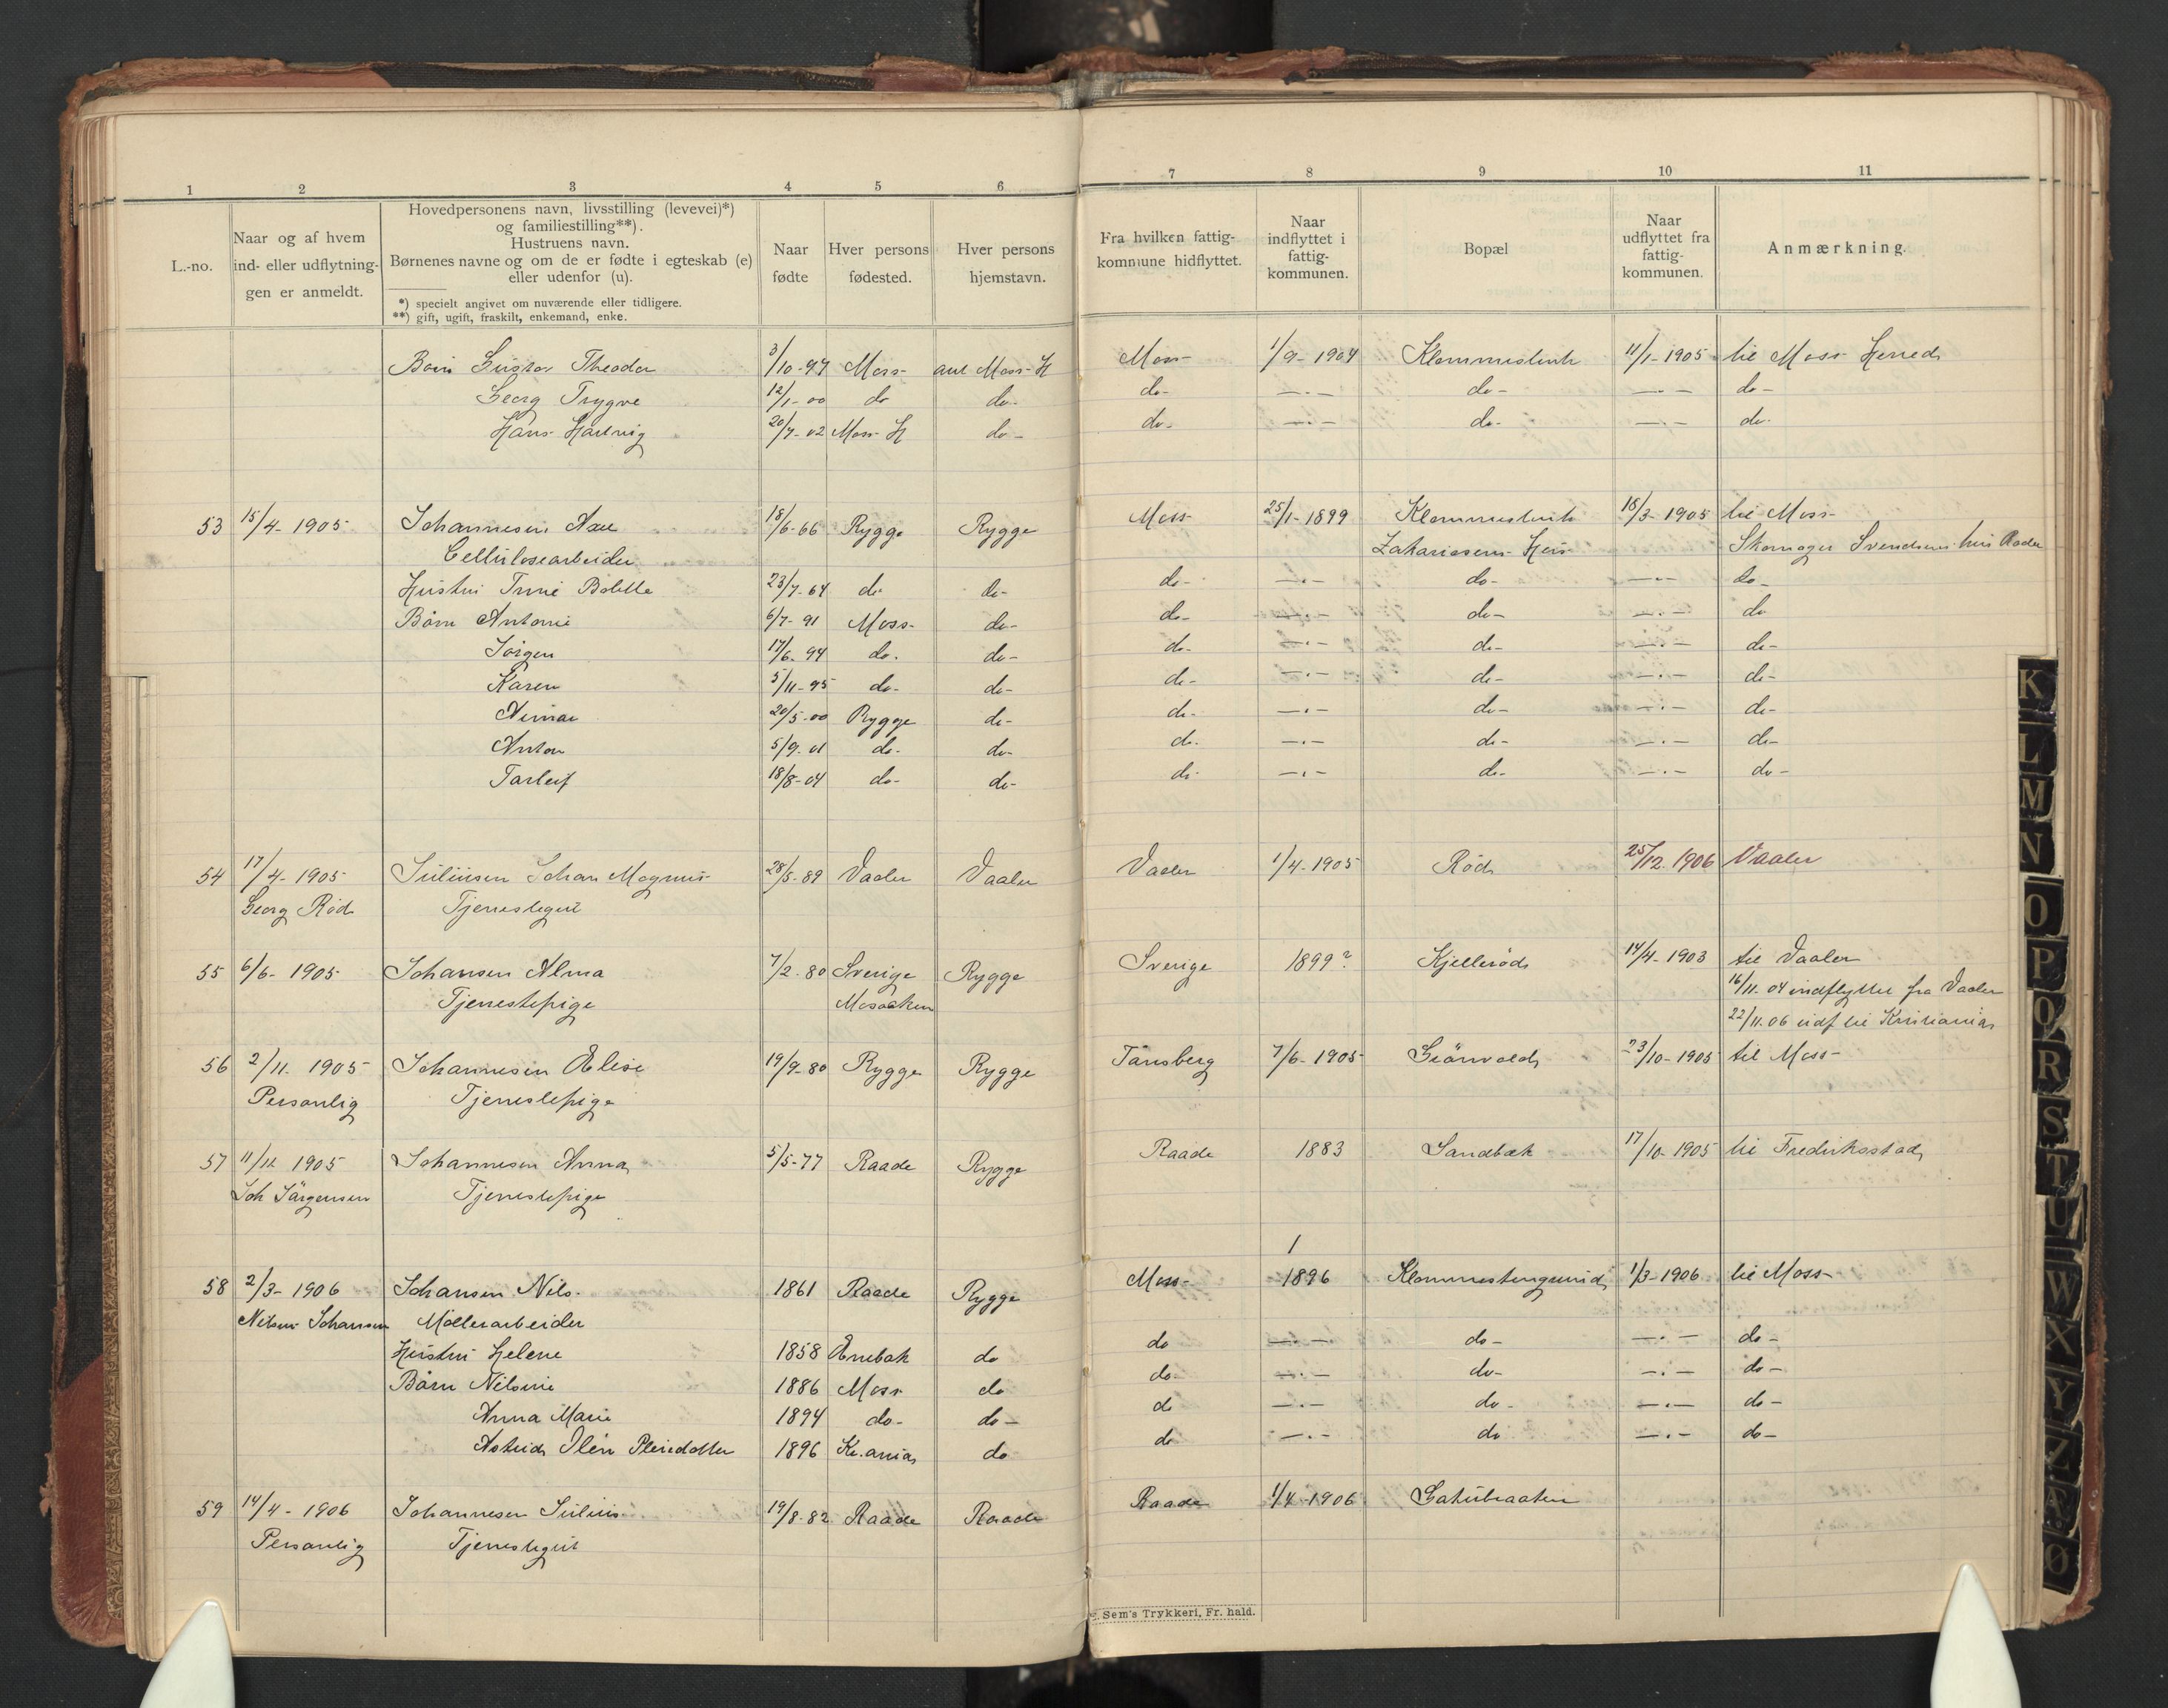 1 2 3 4 5 6 7 8 9 10 11
L.-no.
Naar og af hvem
ind- eller udflytnin-
gen er anmeldt.
Hovedpersonens navn, livsstilling (levevei)*)
og familiestilling**).
Hustruens navn.
Børnenes navne og om de er fødte i egteskab (e)
eller udenfor (u).
*) specielt angivet om nuværende eller tidligere.
**) gift, ugift, fraskilt, enkemand, enke.
Naar
fødte
Hver persons
fødested.
Hver persons
hjemstavn.
Fra hvilken fattig-
kommune hidflyttet.
Naar
indflyttet i
fattig-
kommunen.
Bopæl
Naar
udflyttet fra
fattig-
kommunen.
Anmærkning.
Børn Gustav Theodor 3/10-97 Moss- ant Moss-H Moss- 1/9-1904 11/1-1905 til Moss Herred
Georg Trygve 12/1-00 do do- do- —.— do- —.— do-
Hans Hartvig 20/7-02 Moss H do- do- —.— do- —.— do-
53 15/4-1905 Johannesen Axel 18/6-66 Rygge Rygge Moss 25/1-1899 18/3-1905 til Moss-
Cellulosearbeider Zakariasens Hus Skomager Svendsens hus
Hustru Trine Bolette 23/7-64 do- do- do- —.— do- —.— do-
Børn Antonie 6/7-91 Moss- do- do- —.— do- —.— do
Jørgen 17/6-94 do- do- do- —.— do- —.— do-
Karen 5/11-95 do- do- do- —.— do- —.— do-
20/5-00 Rygge do- do- —.— do- —.— do-
Anton 5/9-01 do- do- do- —.— do- —.— do-
Torleif 18/8-04 do- do- do- —.— do- —.— do-
54 17/4-1905 Juliusen Johan Magnus 28/5-89 Vaaler Vaaler Vaaler 1/4-1905 Rød 25/12-1906 Vaaler
Georg Rød Tjenestegut
55 6/6-1905 Johansen Alma 7/2-80 Sverige Rygge Sverige 1899? Kjellerød 14/4-1903 til Vaaler
Tjenestepige 16/11-04 indflyttet fra Vaaler
22/11-06 udf til Kristiania
56 2/11-1905 Johannesen Elise 19/9-80 Rygge Rygge Tønsberg 7/6-1905 Grønvold 23/10-1905 til Moss-
Personlig Tjenestepige
57 11/12 1905 Johannesen Anna 5/5-77 Raade Rygge Raade 1883 Sandbæk 17/10-1905 til Fredriksstad
Joh Jørgensen Tjenestepige
58 2/3-1906 Johansen Nils- 1861 Raade Rygge Moss- 1896 1/3-1906 til Moss-
Nilsen Johansen Møllerarbeider
Hustru Helene 1858 Enebak do do —.— do- —.— do-
Børn Nilsine 1886 Moss do do- —.— do- —.— do-
Anna Marie 1894 do- do- do —.— do- —.— do-
Astrid Olsen Pleiedatter 1896 Kr.ania do do —.— do —.— do-
59 14/4-1906 Johannesen Julius 19/8-82 Raade Raade Raade 1/4-1906 Gatubraaten
Personlig Tjenestegut
Sem's Trykkeri, Fr. hald.
K
L
M
N
O
P
Q
R
S
T
U
W
X
Y
Z
Ø